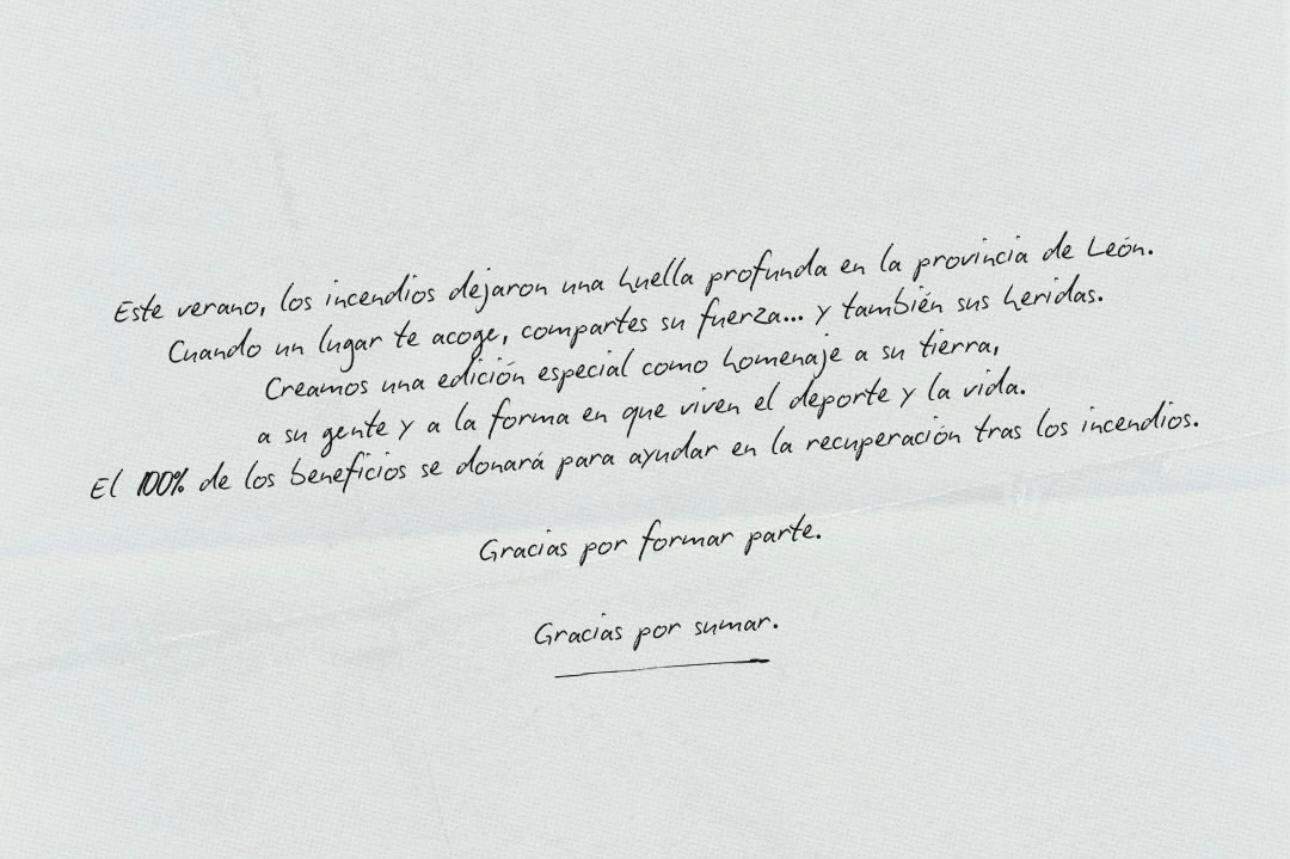 Este verano, los incendios dejaron una huella profunda en la provincia de León.
Cuando un lugar te acoge, compartes su fuerza... y también sus heridas.
Creamos una edición especial como homenaje a su tierra,
a su gente y a la forma en que viven el deporte y la vida.
El 100% de los beneficios se donará para ayudar en la recuperación tras los incendios.
Gracias por formar parte.
Gracias por sumar.